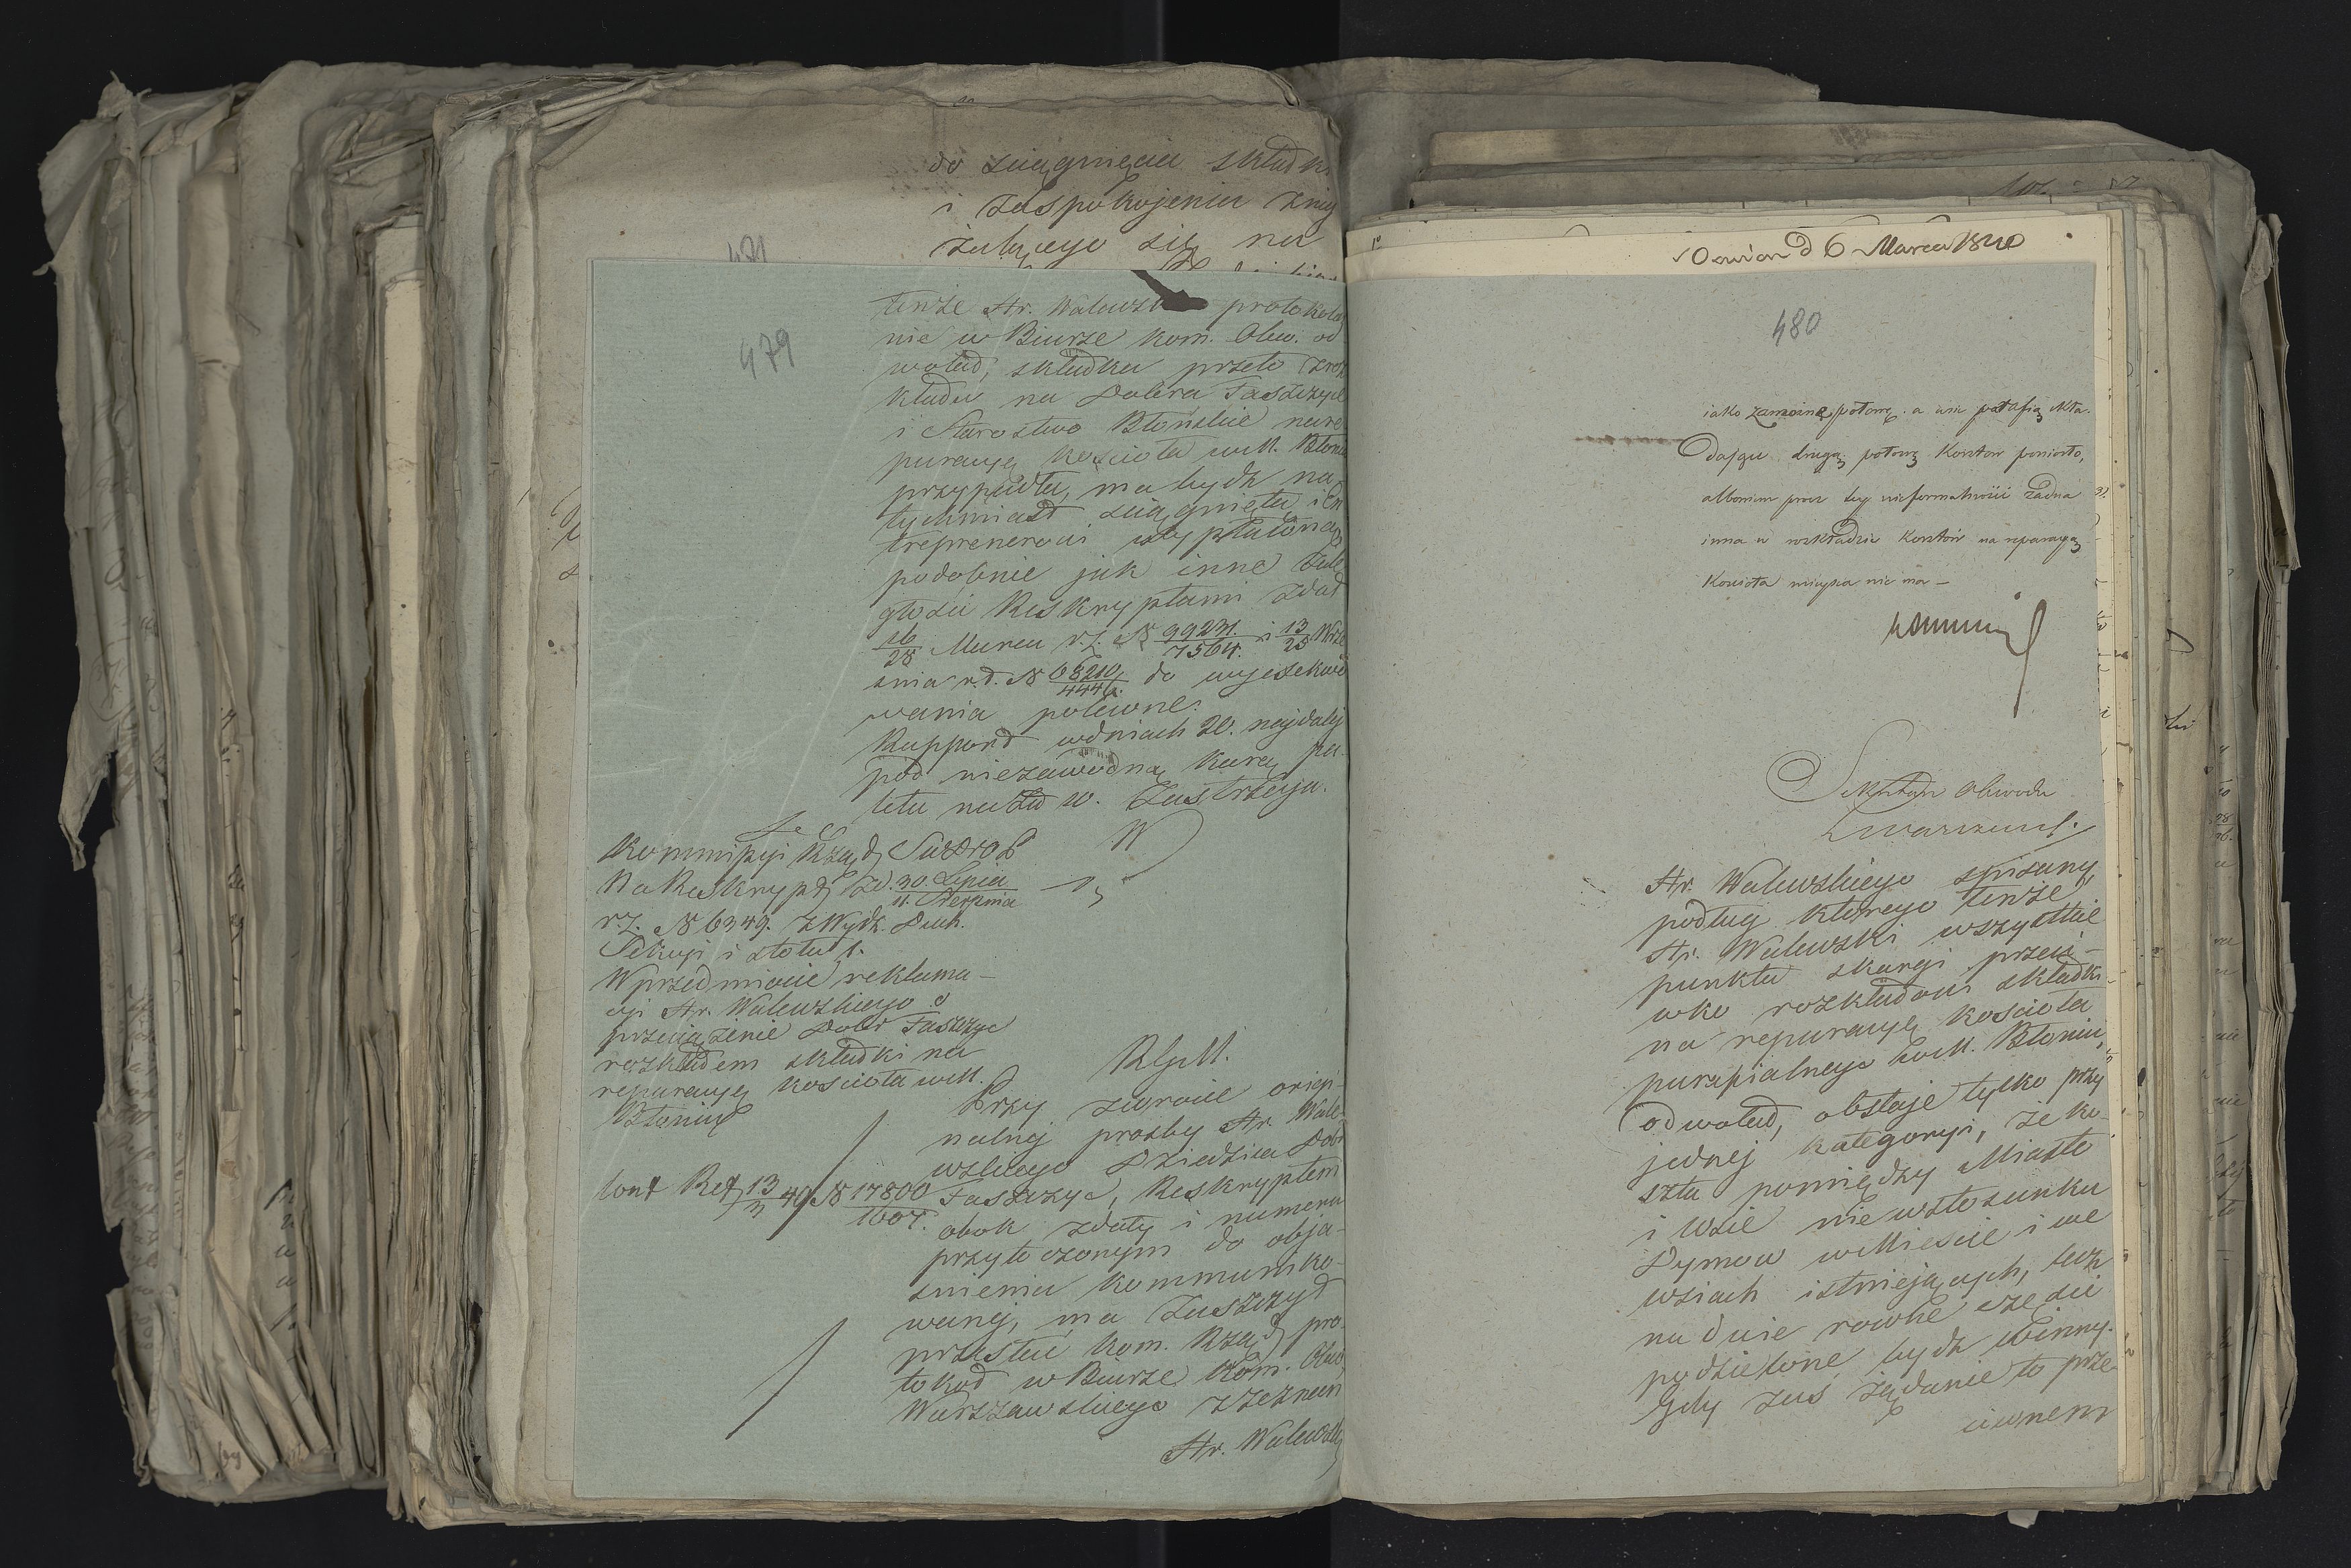 do sciągnięcia składki
i zaspokojenia
żalącego się na
481
479
tenże Hr. Walewski protokolar
nie w Biurze Kom. Obw. od
wołał, składka przeto z roz
kładu na Dobra Faszczyce
i Starostwo Błońskie na re
peracyę kościoła w M. Błoniu
przypadła, ma bydź na
tychmiast ściągnięta i En
treprenerowi wypłaconą,
podobnie jak inne zale
głości Reskryptami z dat
16/28 Marca r.z. N 99231/7564. i 13/25 Wrze
śnia r.b. N 68210/444 do wyjezekwo
wania polecone.
Rapport w dniach 20. najdalej
pod niezawodną karą pa
letu nastąpi w. Zastrzega.
Kommissyi Rząd
Na Reskrypt z d. 30. Lipca/11. Sierpnia
r.z. N 6349. z Wydz. Duch.
Sekcyi i stołu 1.
W przedmiocie reklama-
cyi Hr. Walewskiego o
przeciążenie Dóbr Faszczyc
rozkładem składki na
reperacyę kościoła w M.
Błoniu
N
RGM.
Przy zwrocie origi-
nalnej prośby Hr. Wale-
wskiego Dziedzica Dóbr
Faszczyc, Reskryptem
obok z daty i numeru
przytoczonym do obja-
śnienia kommuniko-
wanej, ma zaszczyt
przesłać Kom. Rząd pro
tokoł w Biurze Kom. Obw.
Warszawskiego z zeznań
Hr. Walewski
13/3 40 N 17800/1607.
6 Marca 1840
480
połowę a
drugą połowę Kosztów poniosło,
albowiem prócz tey żadna
inna w rozkładzie Kosztów na reparacyą
Kościoła mieysca nie ma –
Obwodu
Hr. Walewskiego spisany,
podług którego tenże
Hr. Walewski wszystkie
punkta skargi przeci-
wko rozkładowi składki
na reperacyę kościoła
parafialnego w M. Błoniu,
odwołał, obstaje tylko przy
jednej kategoryi, że ko-
szta pomiędzy Miasto
i Wsie nie w stosunku
Dymów w Mieście i we
wsiach istniejących, lecz
na dwie równe części
podzielone bydź winny.
Gdy zaś żądanie to prze-
ciwnem